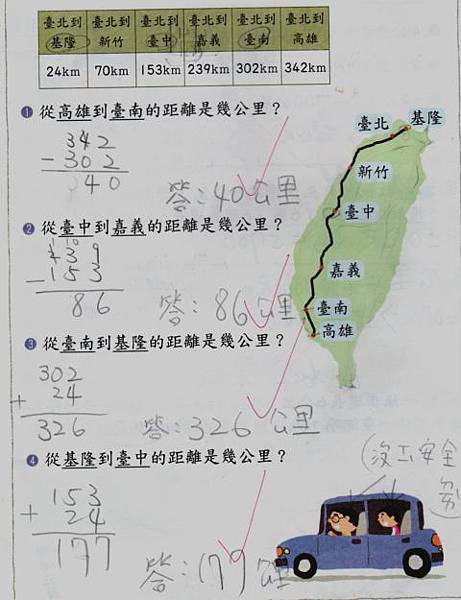 臺北到基隆 臺北到新竹 臺北到臺中 臺北到嘉義 臺北到臺南 臺北到高雄
24km 70km 153km 239km 302km 342km
❶ 從高雄到臺南的距離是幾公里？
342
- 302
40
答：40公里
❷ 從臺中到嘉義的距離是幾公里？
239
- 153
86
答：86公里
❸ 從臺南到基隆的距離是幾公里？
302
+ 24
326
答：326公里
❹ 從基隆到臺中的距離是幾公里？
153
+ 24
177
答：179公里
臺北
基隆
新竹
臺中
嘉義
臺南
高雄
安全